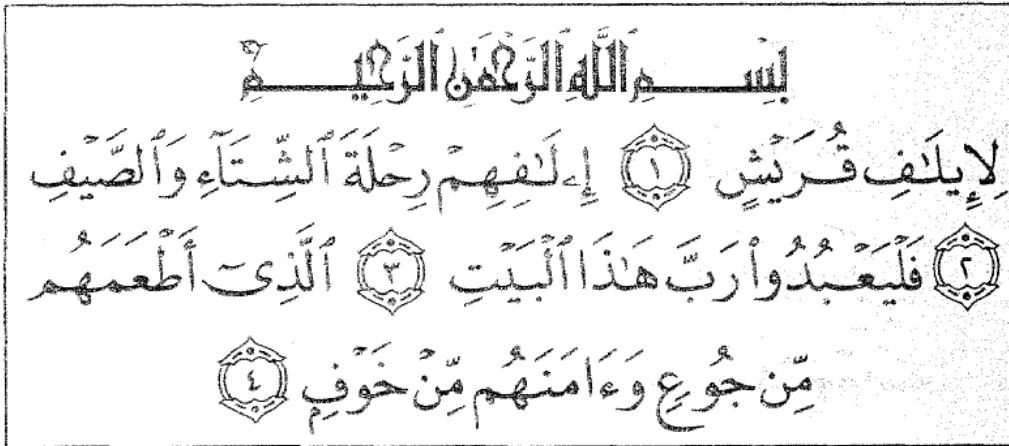 بِسْمِ ٱللَّهِ ٱلرَّحْمَٰنِ ٱلرَّحِيمِ
لِإِيلَٰفِ قُرَيْشٍ ١ إِۦلَٰفِهِمْ رِحْلَةَ ٱلشِّتَآءِ وَٱلصَّيْفِ
٢ فَلْيَعْبُدُوا۟ رَبَّ هَٰذَا ٱلْبَيْتِ ٣ ٱلَّذِىٓ أَطْعَمَهُم
مِّن جُوعٍ وَءَامَنَهُم مِّنْ خَوْفٍۭ ٤